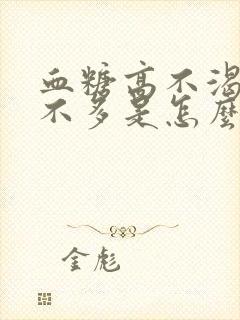 血糖高不渴
不多是怎麽
金彪